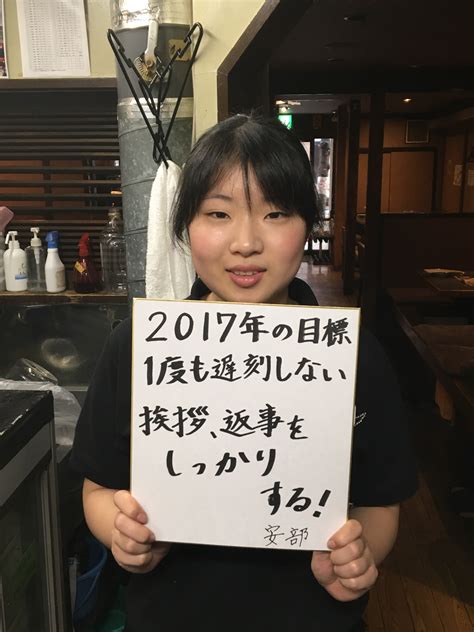 2017年の目標
1度も遅刻しない
挨拶、返事を
しっかり
する!
安部